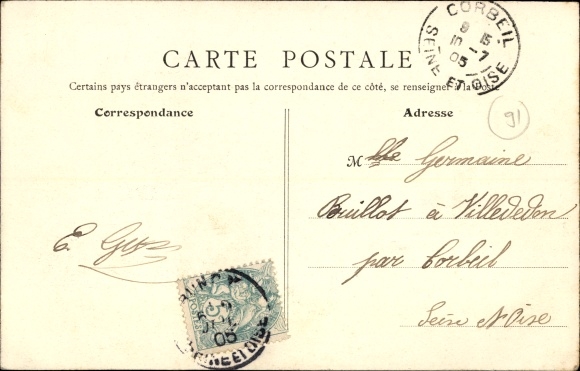 CORBEIL
8 15
10 -7
05
SEINE ET OISE
CARTE POSTALE
Certains pays étrangers n'acceptant pas la correspondance de ce côté, se renseigner à la Poste
Correspondance
Adresse
91
Mlle Germaine
Buillot à Villededon
par Corbeil
Seine & Oise
E.
05
SEINE ET OISE